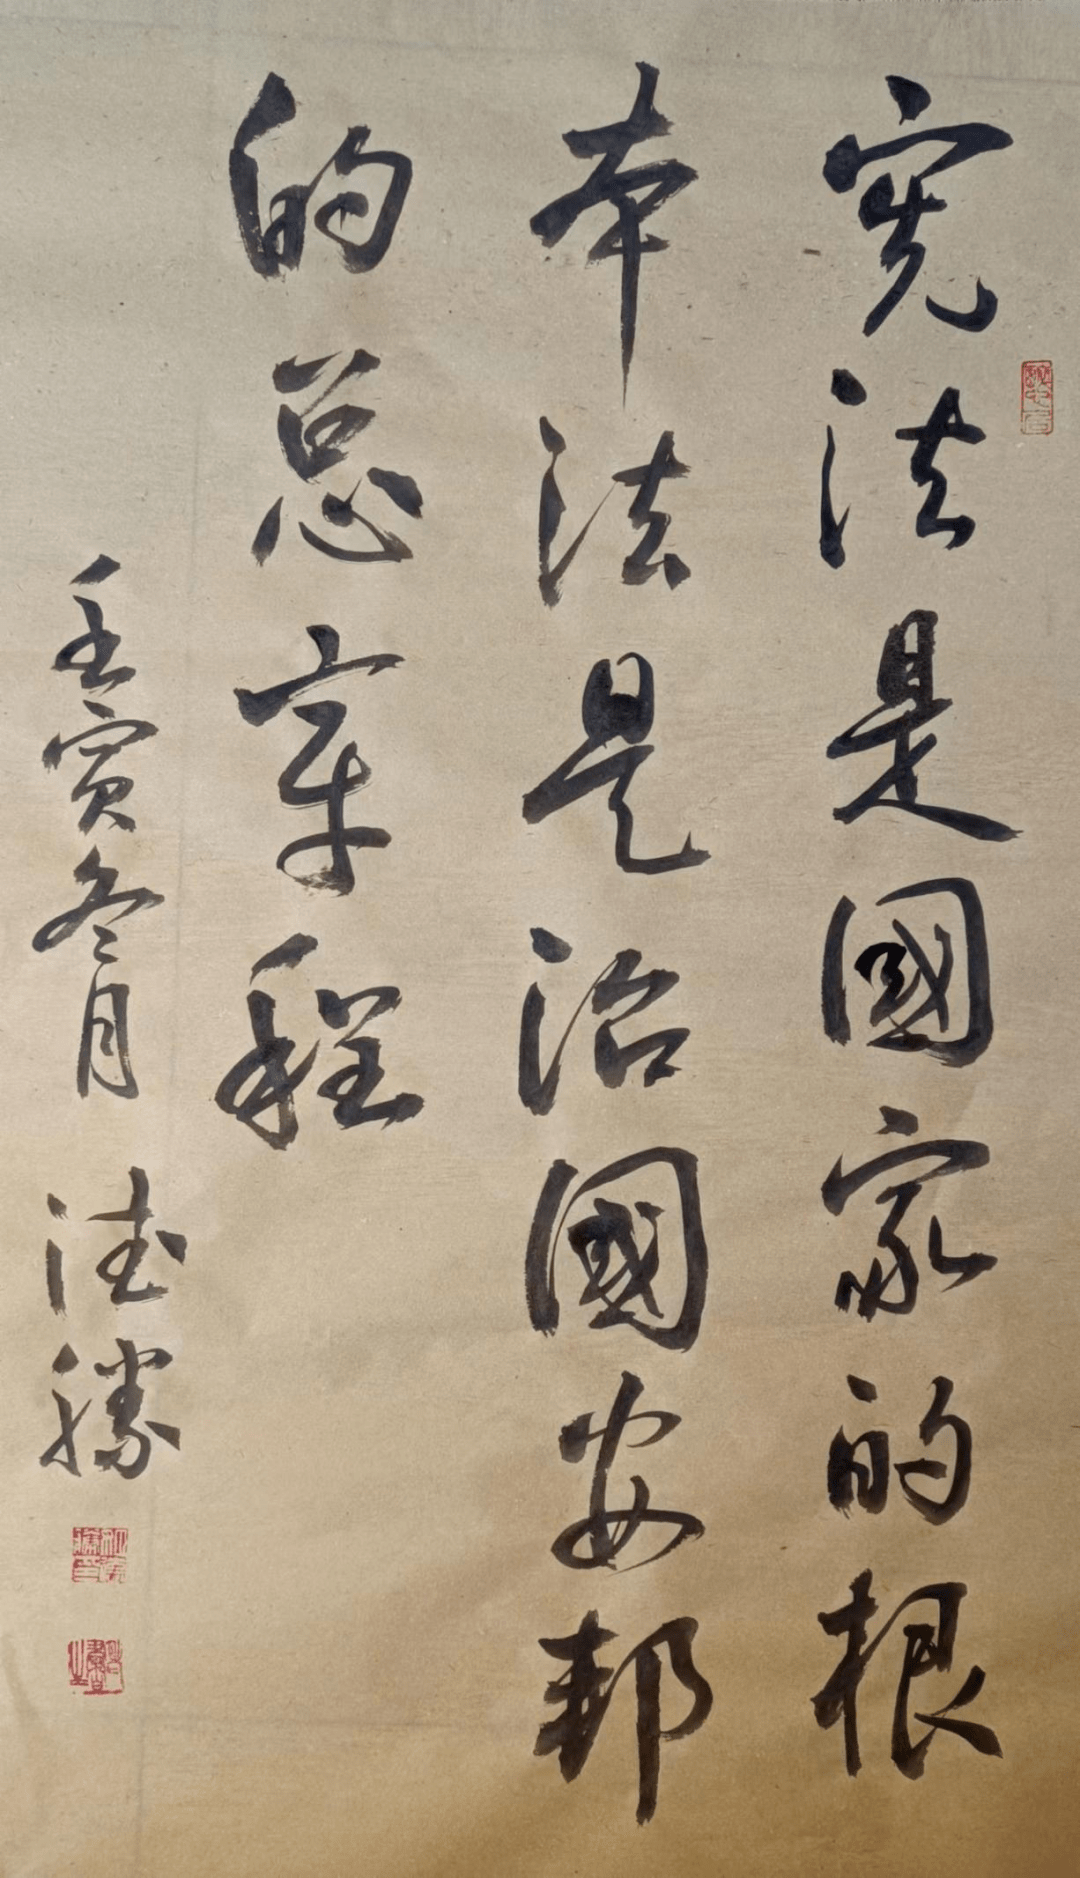 宪法是國家的根
本法是治國安邦
的总章程
壬寅冬月 德勝